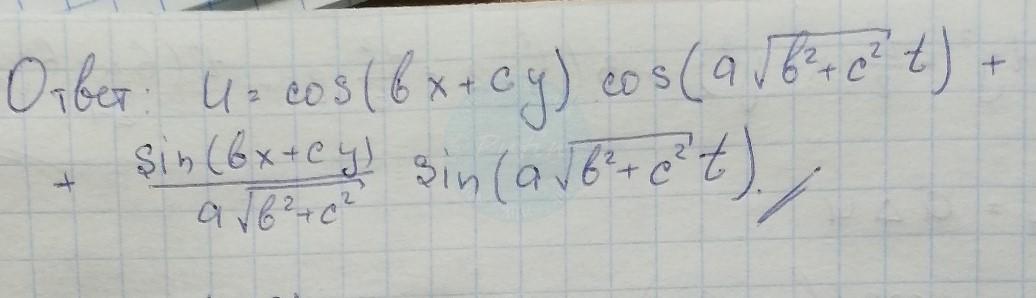 Ответ: u = cos(bx+cy) cos(a√(b²+c²) t) +
+ sin(bx+cy) / a√(b²+c²) sin(a√(b²+c²) t).